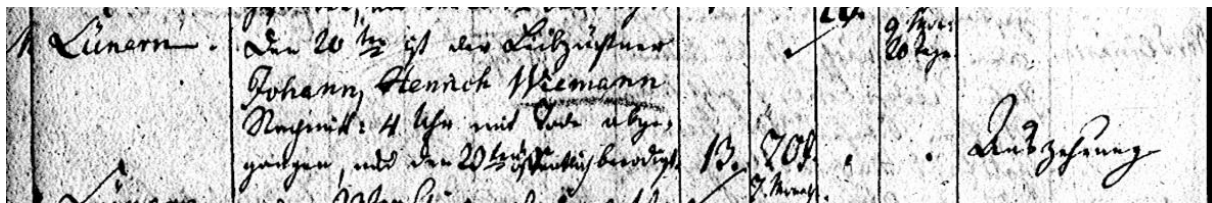 Lünern.
Den 20ten ist der Leibzüchtner
Johann Henrich Wiemann
Nachmitt: 4 Uhr mit Tode abge-
gangen, und den 23ten öffentlich beerdigt.
13.
70 J.
7. Monat.
20 Tage.
Auszehrung